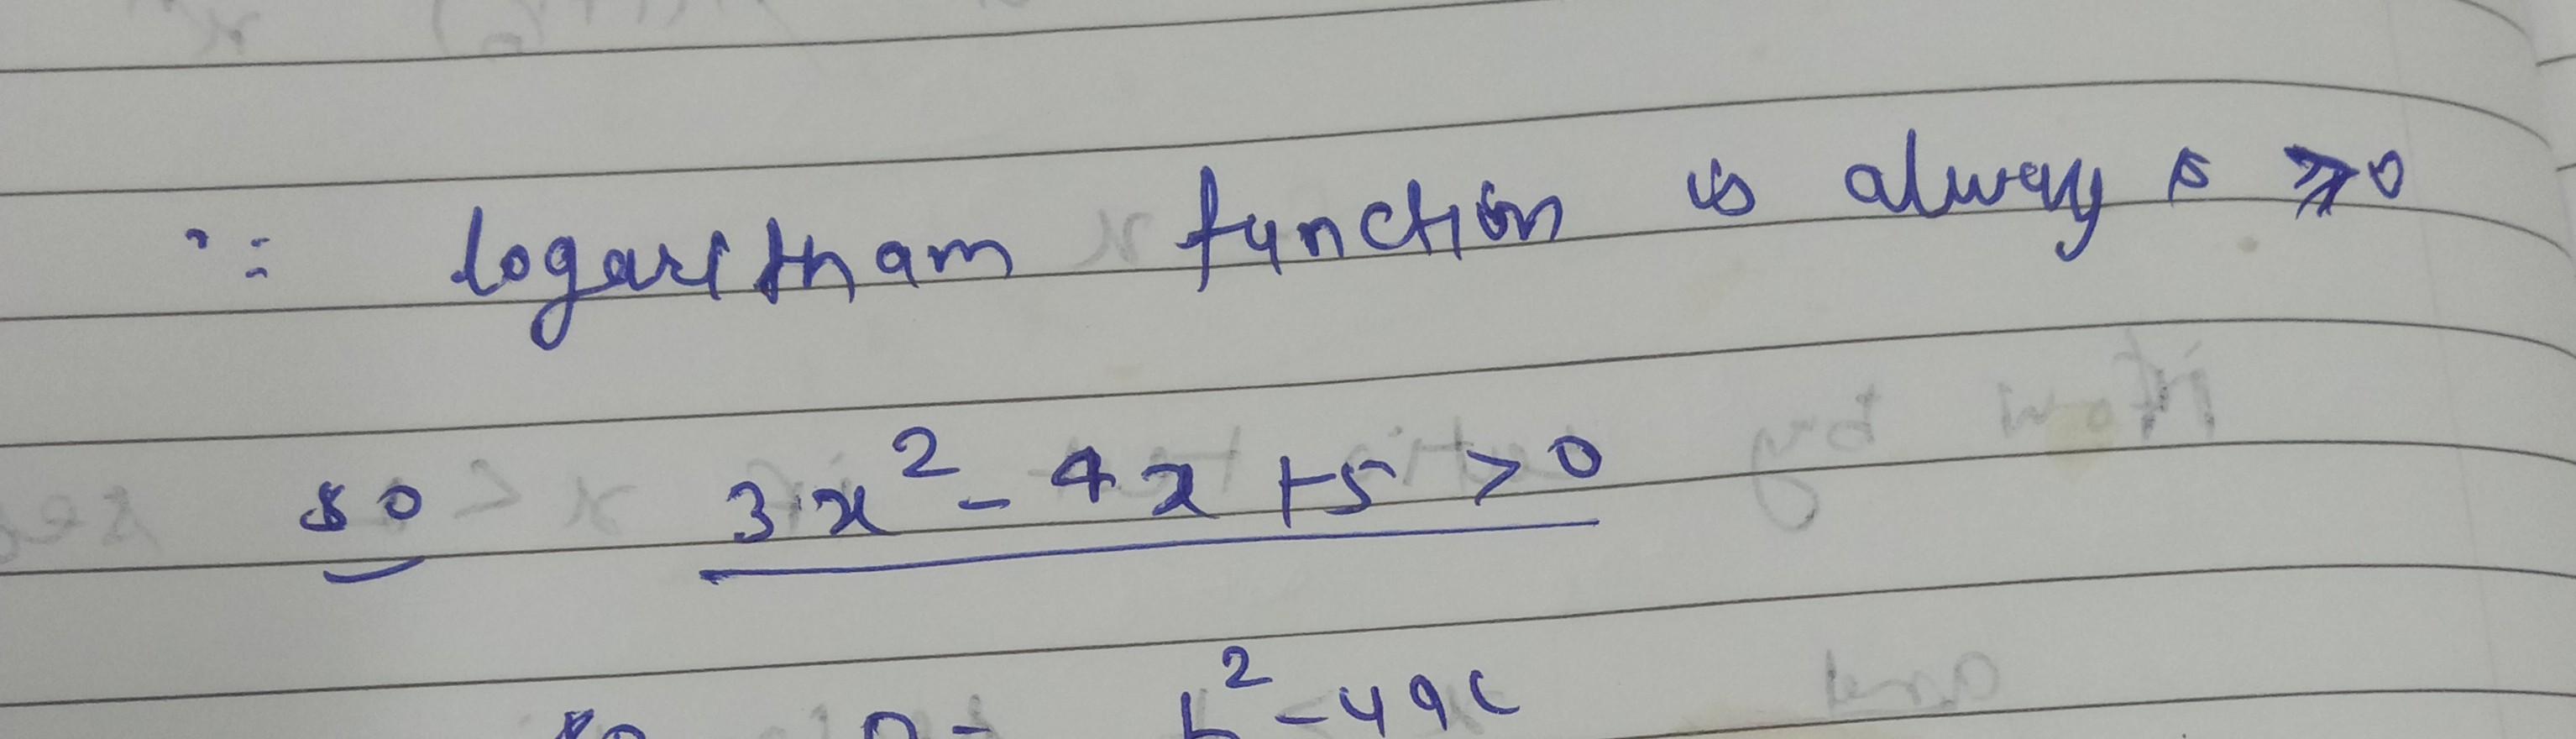 ∵ logaritham function is always ≥0
so 3x² - 4x +5 > 0
so D = b² - 4ac